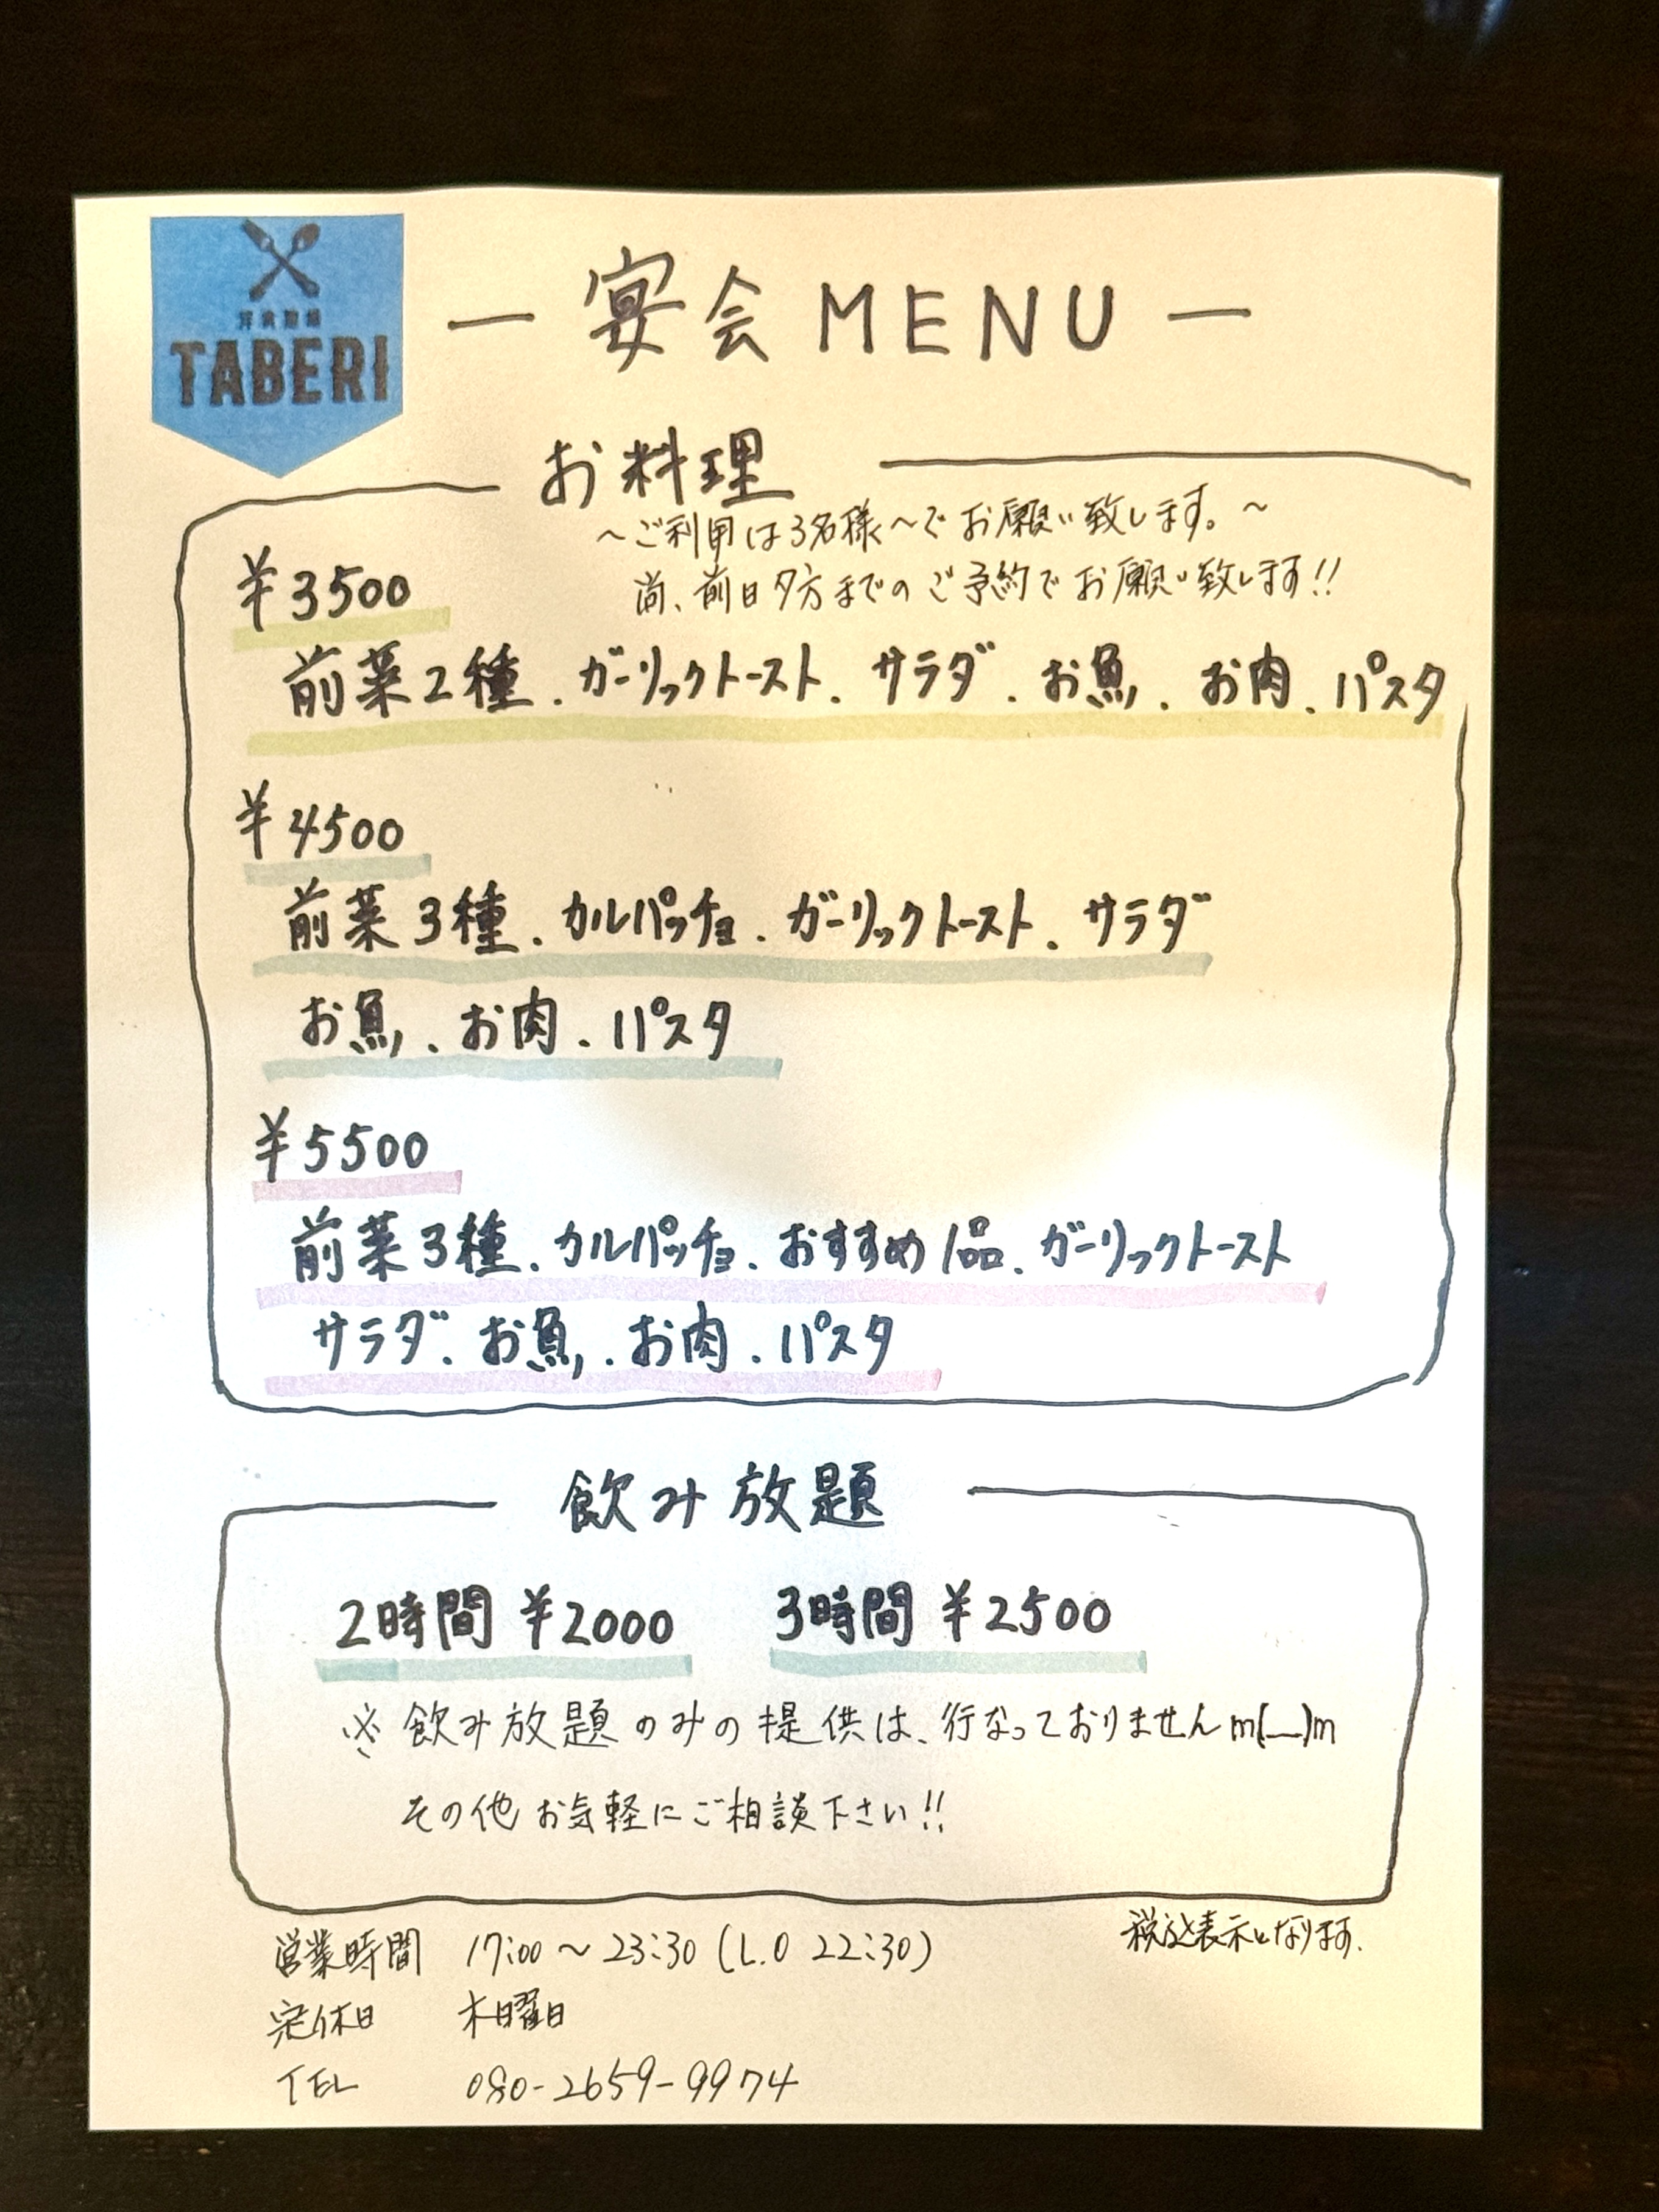 洋食酒場
TABERI
ー 宴会 MENU ー
お料理
～ご利用は3名様～でお願い致します。～
尚、前日夕方までのご予約でお願い致します!!
¥3500
前菜2種．ガーリックトースト．サラダ．お魚．お肉．パスタ
¥4500
前菜3種．カルパッチョ．ガーリックトースト．サラダ
お魚．お肉．パスタ
¥5500
前菜3種．カルパッチョ．おすすめ1品．ガーリックトースト
サラダ．お魚．お肉．パスタ
飲み放題
2時間 ¥2000 3時間 ¥2500
※飲み放題のみの提供は、行なっておりませんm(__)m
その他お気軽にご相談下さい!!
税込表示となります.
営業時間 17:00～23:30 (L.O 22:30)
定休日 木曜日
TEL 080-2659-9974